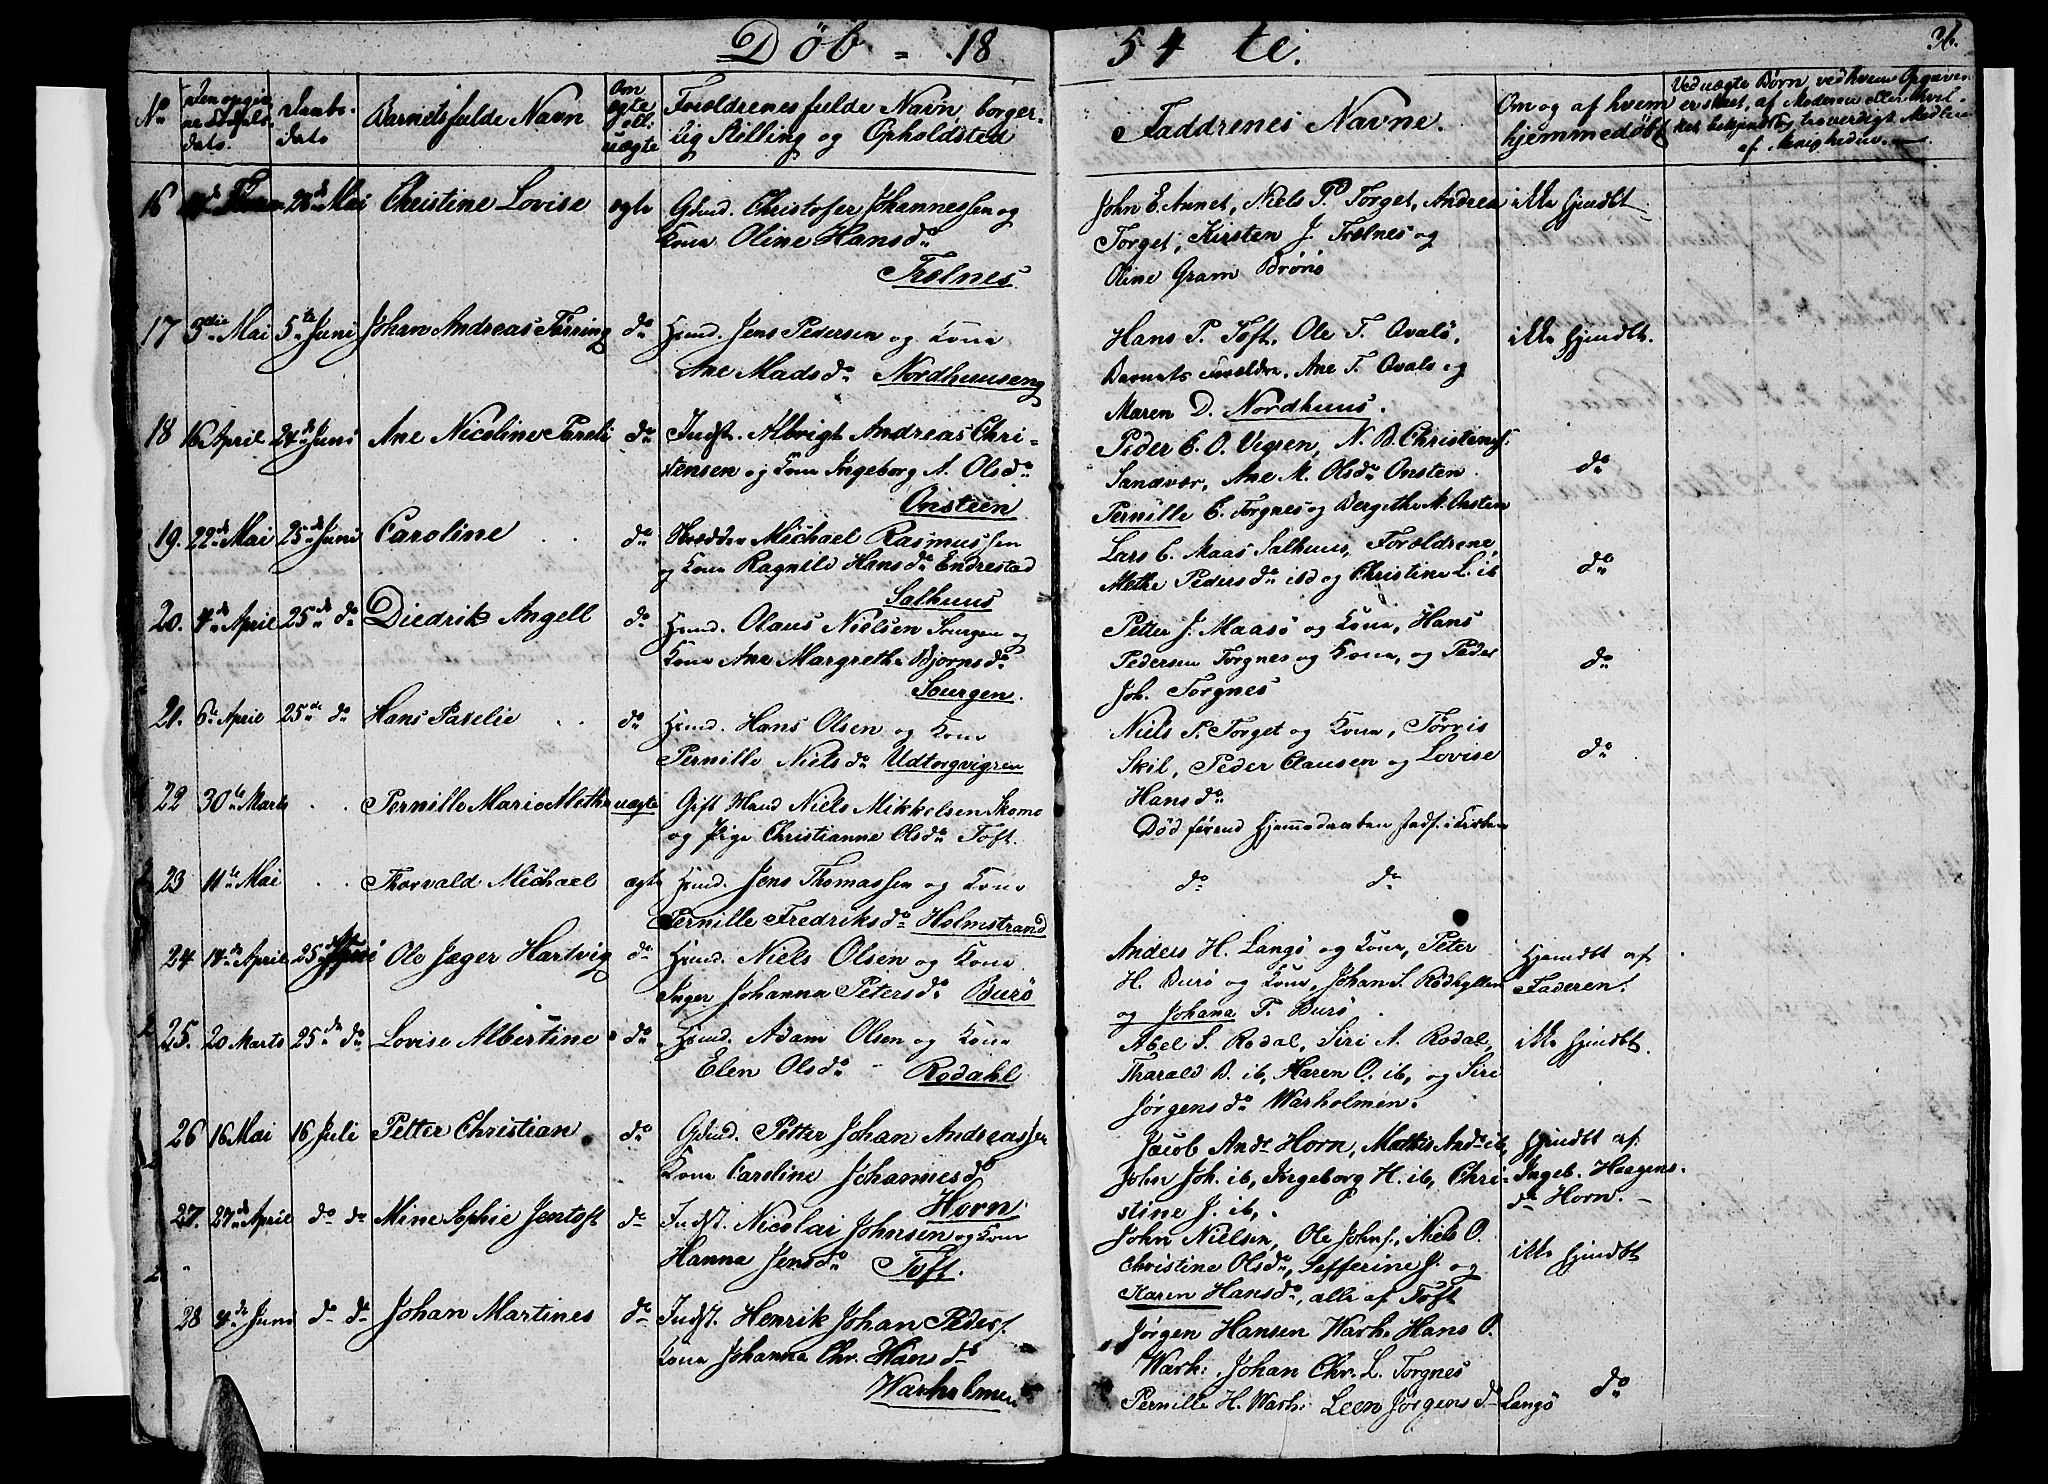 Døb = 18 54 te.
36.
No
Den opgivne Fødselsdato.
Daabsdato
Barnets fulde Navn
Om ægte ell. uægte
Forældrenes fulde Navn, borgerlig Stilling og Opholdsted
Faddrenes Navne.
Om og af hvem hjemmedøbt
Ved uægte Børn, ved hvem Opgaven er skeet, af Moderen eller
troverdigt Medlem af Menigheden.
16 28de Mai Christine Lovise ægte Gbmd. Christofer Johannessen og
Kone Oline Hansdr
Trælnes
John E. Annet, Niels P. Torget, Andrea
Torget, Kirsten J. Trælnes og
Oline Gram Brønø
ikke hjmdbt.
17 3die Mai 5te Juni Johan Andreas Tørring do Hmd. Jens Pedersen og Kone
Ane Madsdr Nordhuuseng
Hans P. Toft, Ole T. Qvalø,
Barnets Forældre, Ane T. Qvalø og
Maren D. Nordhuus.
ikke hjmdbt.
18 16 April 24de Juni Ane Nicoline Pareli do Indst. Albrigt Andreas Chri-
stensen og Kone Ingeborg A. Olsdr
Onsteen
Peder C. O. Vegren, N. B. Christens.
Sandvær, Ane M. Olsdr Onsten
Pernille C. Torgnes og Bergithe M. Onsten
do
19. 22de Mai 25de Juni Caroline do Skrædder Michael Rasmussen
og Kone Ragnild Hansdr Endrestad
Salhuus
Lars C. Maas Salhuus, Forældrene,
Methe Pedersdr ibd og Christine L. ib
do
20. 4de April 25de do Diedrik Angell do Hmd. Olaus Nielsen Sourgen og
Kone Ane Margrethe Bjornsdr
Sourgen.
Petter J. Maasø og Kone, Hans
Pedersen Torgnes og Kone, og Peder
Joh. Torgnes
do
21. 6te April 25de do Hans Parelie do Hmd. Hans Olsen og Kone
Pernille Nielsdr Udtorgvigren
Niels P. Torget og Kone, Tørris
Skil, Peder Clausen og Lovise
Hansdr
do
22 30te Marts Pernille Marie Methe uægte Gift Mand Niels Mikkelsen Skomo
og Pige Christianne Olsdr Toft.
Død førend Hjemmedaaben Indf. i Kirken
23 11te Mai Thorvald Michael ægte Hmd. Jens Thomassen og Kone
Pernille Fredriksdr Holmstrand
do do
24 14de April 25de Juni Ole Jæger Hartvig do Hmd. Niels Olsen og Kone
Inger Johanna Petersdr Burø
Anders H. Langø og Kone, Peter
H. Burø og Kone, Johan S. Rødhyllen
og Johana P. Burø
Hjemdbt af
Faderen.
25. 20 Marts 25de do Lovise Albertine do Hmd. Adam Olsen og Kone
Elen Olsdr Rødahl
Abel S. Rødal, Siri A. Rødal,
Tharald B. ib, Haren O. ib, og Siri
Jørgensdr Warholmen.
ikke hjmdbt.
26 16 Mai 16 Juli Petter Christian do Gbmd. Petter Johan Andreassen
Kone Caroline Johannesdr
Horn
Jacob Andr Horn, Mathis Andr ib,
John Joh. ib, Ingeborg H. ib, Chri-
stine J. ib,
hjmdbt af
Ingeb. Haagens-
dr Horn.
27. 27de April do do Mine Sophie Jentoft do Indst. Nicolai Johnsen og Kone
Hanna Jensdr Toft.
John Nielsen, Ole Johns., Niels O.
Christine Olsdr, Sefferine J. og
Karen Hansdr, alle af Toft
ikke hjmdbt
28 4de Juni do do Johan Martines do Indst. Henrik Johan Peders.
Kone Johanna Chr. Hansdr
Warholmen
Jørgen Hansen Warh. Hans O.
Warh: Johan Chr. L. Torgnes
Pernille H. Warh: Leen Jørgensdr Langø
do